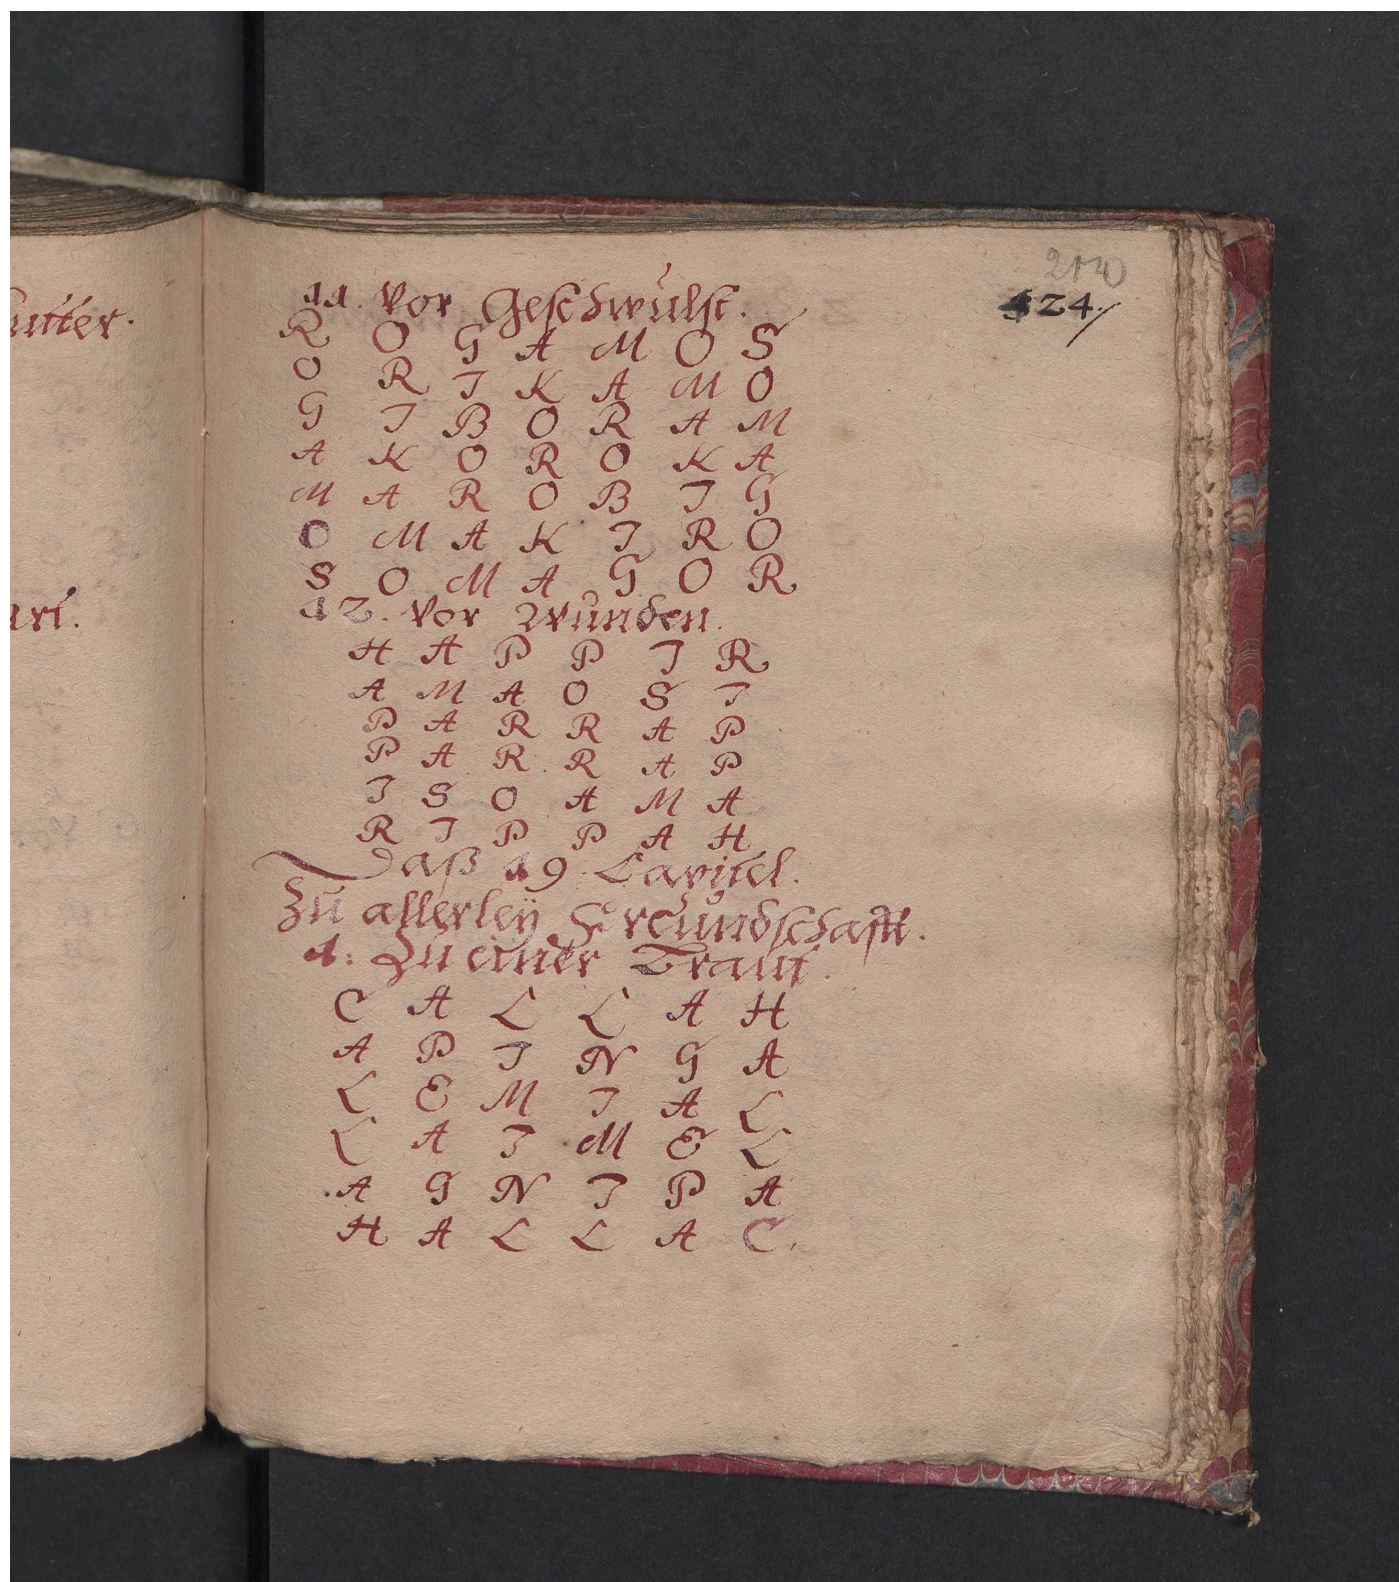 210
424.
11. Vor Geschwulst.
R O G A M O S
O R I K A M O
G I B O R A M
A K O R O K A
M A R O B I G
O M A K I R O
S O M A G O R
12. Vor Wunden.
H A P P I R
A M A O S I
P A R R A P
P A R R A P
I S O A M A
R I P P A H
Daß 19. Capitel.
Zu allerleÿ Freundschafft.
1. Zu einer Braut.
C A L L A H
A P I N G A
L E M I A L
L A I M E L
A G N I P A
H A L L A C.